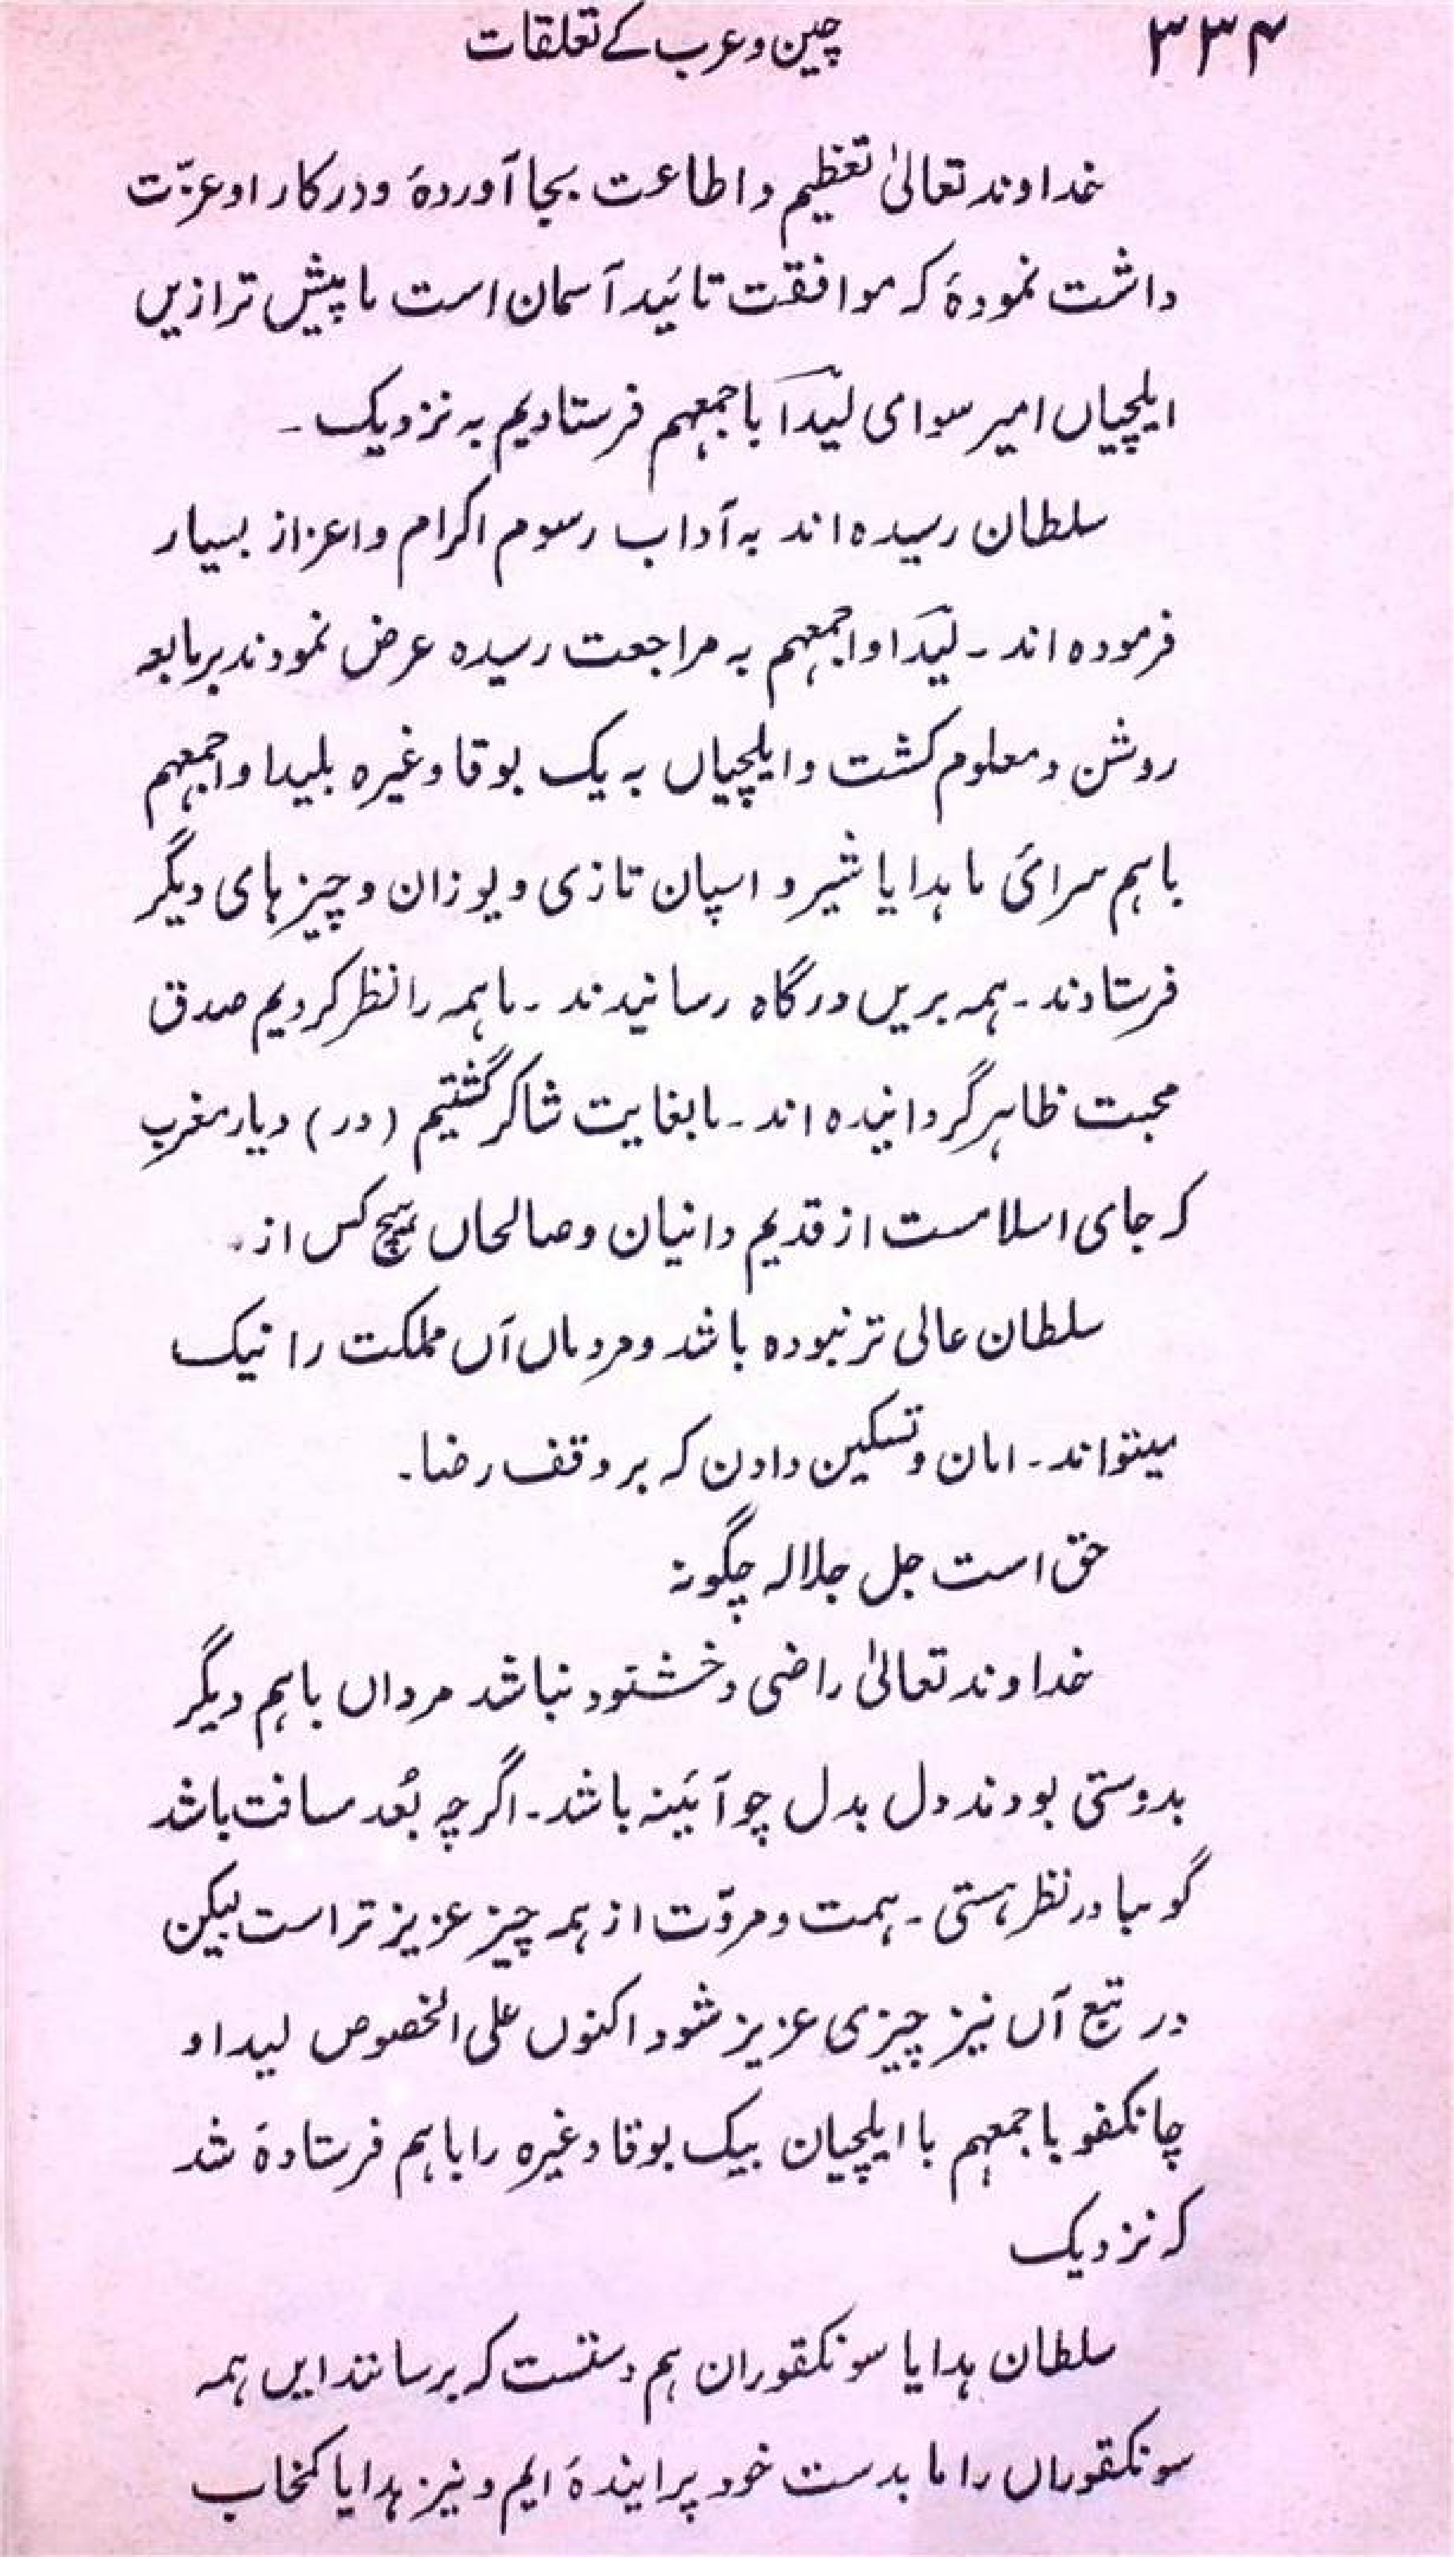 ۳۳۴
چین و عرب کے تعلقات
خداوند تعالیٰ تعظیم و اطاعت بجا آوردۂ و در کار او عزّت
داشت نمودۂ کہ موافقت تائید آسمان است ما پیش تر ازیں
ایلچیاں امیر سوای لیّدآ باجمعہم فرستادیم بہ نزدیک ۔
سلطان رسیدہ اند بہ آداب رسوم اکرام و اعزاز بسیار
فرمودہ اند ۔ لیّدا واجمعہم بہ مراجعت رسیدہ عرض نمودند برمابعہ
روشن و معلوم کشت و ایلچیاں بہ یک بوقا وغیرہ بلیدا واجمعہم
باہم سرائی ما ہدایا شیر و اسپان تازی و یوزان و چیز ہای دیگر
فرستادند ۔ ہمہ بریں درگاہ رسانیدند ۔ ماہمہ را نظر کردیم صدق
محبت ظاہر گردانیدہ اند ۔ مابغایت شاکر گشتیم (در) دیار مغرب
کہ جای اسلامست از قدیم دانیان و صالحاں ہیچ کس از ۔
سلطان عالی تر نبودہ باشد و مردماں آں مملکت را نیک
میتواند ۔ امان و تسکین دادن کہ بر وقف رضا ۔
حق است جل جلالہ چگونہ
خداوند تعالیٰ راضی و خشنود نباشد مرداں باہم دیگر
بدوستی بودند دل بدل چو آئینہ باشد ۔ اگر چہ بُعد مسافت باشد
گوئیا در نظر ہستی ۔ ہمت و مروّت از ہمہ چیز عزیز تر است لیکن
در تبع آں نیز چیزی عزیز شود اکنوں علی الخصوص لیدا و
چانکفو باجمعہم با ایلچیان بیک بوقا وغیرہ را باہم فرستادۂ شد
کہ نزدیک
سلطان ہدایا سونکقوران ہم دستست کہ برسانند ایں ہمہ
سونکقوراں را ما بدست خود پرایندۂ ایم و نیز ہدایا کمخاب